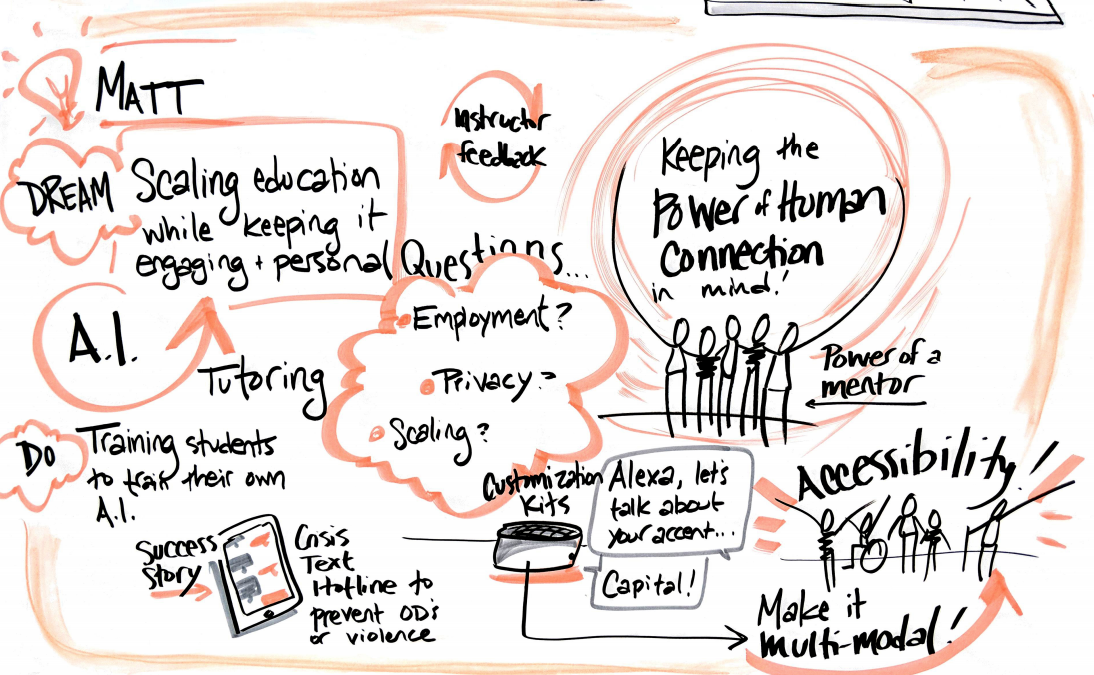 MATT
DREAM
Scaling education
while keeping it
engaging + personal
Instructor
feedback
Keeping the
Power of Human
Connection
in mind!
Power of a
mentor
A.I.
Tutoring
Questions...
Employment?
Privacy?
Scaling?
DO
Training students
to train their own
A.I.
Success
Story
Crisis
Text
Hotline to
prevent OD's
or violence
Customization
Kits
Alexa, let's
talk about
your accent...
Capital!
Accessibility!
Make it
multi-modal!